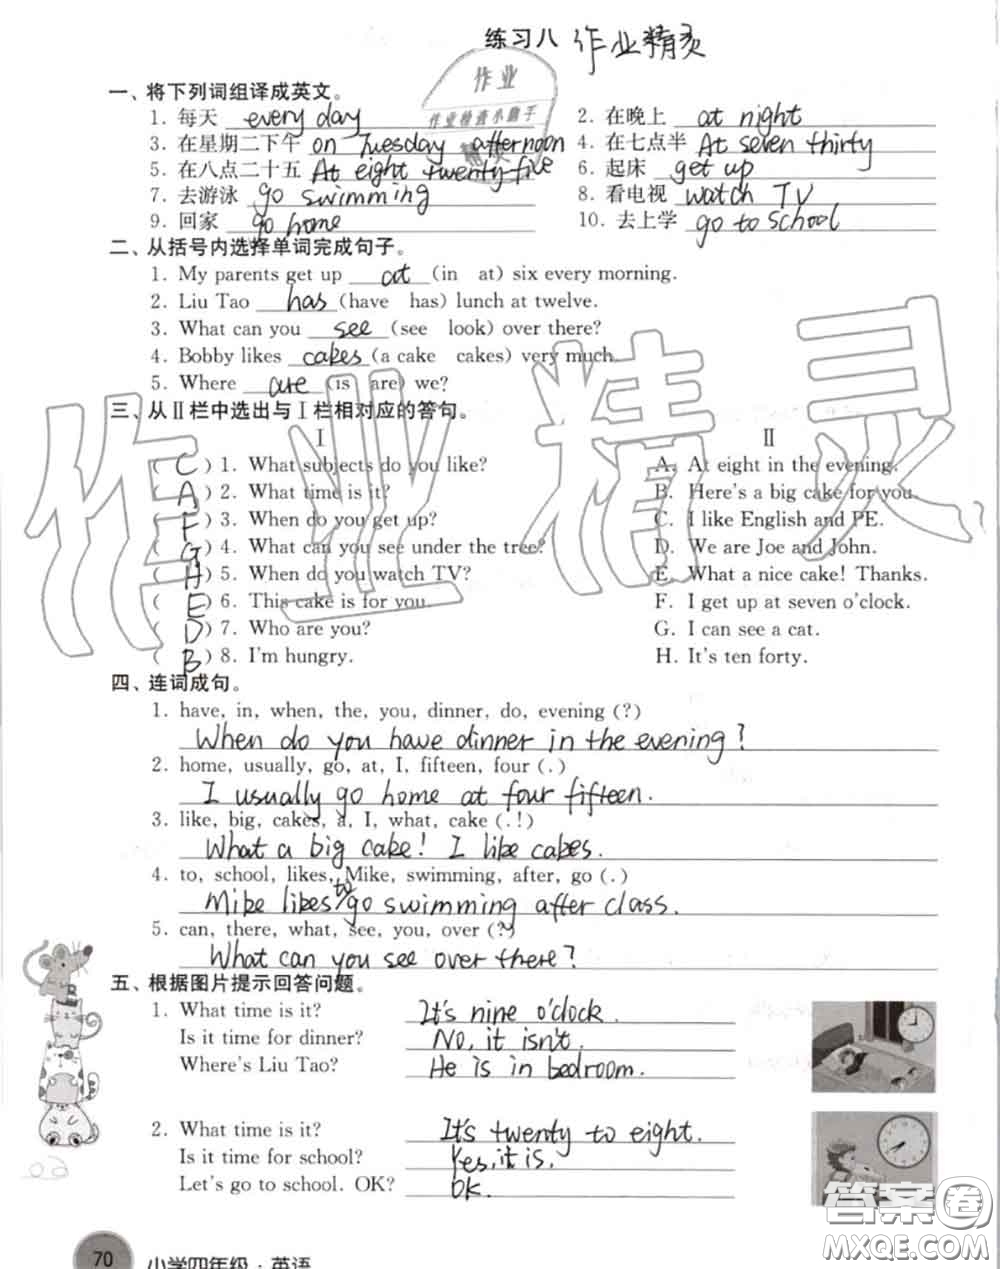 练习八 作业精灵
一、将下列词组译成英文。
1. 每天 every day 2. 在晚上 at night
3. 在星期二下午 on Tuesday afternoon 4. 在七点半 At seven thirty
5. 在八点二十五 At eight twenty-five 6. 起床 get up
7. 去游泳 go swimming 8. 看电视 watch TV
9. 回家 go home 10. 去上学 go to school
二、从括号内选择单词完成句子。
1. My parents get up at (in at) six every morning.
2. Liu Tao has (have has) lunch at twelve.
3. What can you see (see look) over there?
4. Bobby likes cakes (a cake cakes) very much.
5. Where are (is are) we?
三、从Ⅱ栏中选出与Ⅰ栏相对应的答句。
Ⅰ Ⅱ
( C ) 1. What subjects do you like? A. At eight in the evening.
( A ) 2. What time is it? B. Here's a big cake for you.
( F ) 3. When do you get up? C. I like English and PE.
( G ) 4. What can you see under the tree? D. We are Joe and John.
( H ) 5. When do you watch TV? E. What a nice cake! Thanks.
( E ) 6. This cake is for you. F. I get up at seven o'clock.
( D ) 7. Who are you? G. I can see a cat.
( B ) 8. I'm hungry. H. It's ten forty.
四、连词成句。
1. have, in, when, the, you, dinner, do, evening (?)
When do you have dinner in the evening?
2. home, usually, go, at, I, fifteen, four (.)
I usually go home at four fifteen.
3. like, big, cakes, a, I, what, cake (.!)
What a big cake! I like cakes.
4. to, school, likes, Mike, swimming, after, go (.)
Mike likes to go swimming after class.
5. can, there, what, see, you, over (?)
What can you see over there?
五、根据图片提示回答问题。
1. What time is it? It's nine o'clock.
Is it time for dinner? No, it isn't.
Where's Liu Tao? He is in bedroom.
2. What time is it? It's twenty to eight.
Is it time for school? Yes, it is.
Let's go to school. OK? OK.
70 小学四年级·英语
作业精灵
答案卷
MXQE.COM